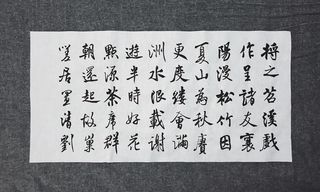 將之苕溪戲
作呈諸友襄
陽漫松竹因
夏山為秋賡
更度縷會滿
洲水限載謝
遊半時好花
點源茶席群
朝還起故巢
嗟居置清劉